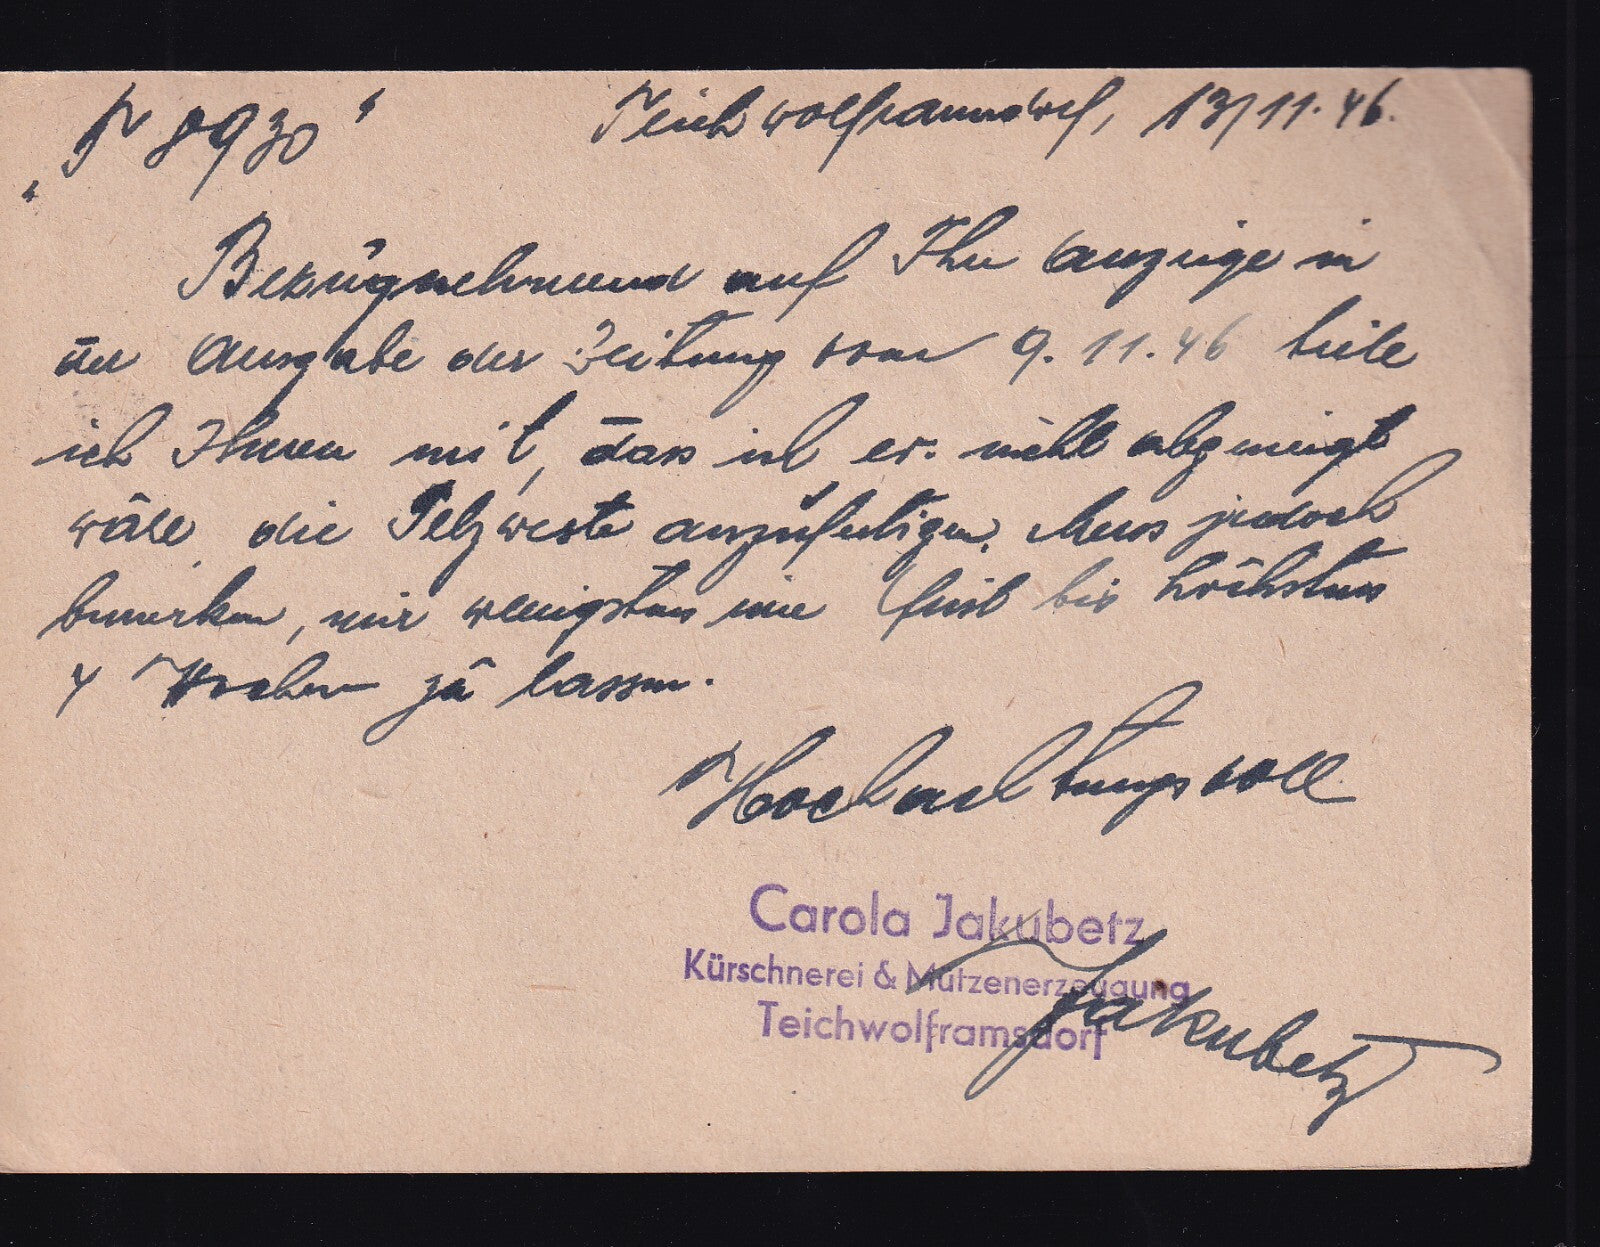 " P 8930 " Teichwolframsdorf, 13/11.46.
Bezugnehmend auf Ihre Anzeige in
der Ausgabe der Zeitung vom 9.11.46 teile
ich Ihnen mit, dass ich ev. nicht abgeneigt
wäre, die Pelzweste anzufertigen. Muss jedoch
bemerken, mir wenigstens eine Frist bis höchstens
4 Wochen zu lassen.
Hochachtungsvoll
Carola Jakubetz
Kürschnerei & Mützenerzeugung
Teichwolframsdorf
Jakubetz